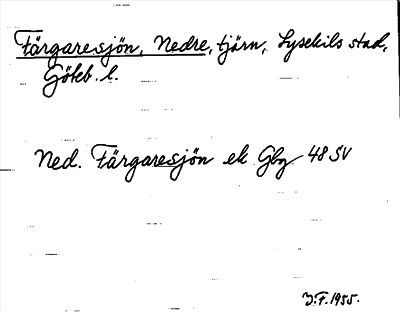 Färgaresjön, Nedre, tjärn, Lysekils stad,
Göteb. l.
Ned. Färgaresjön ek Gbg 48 SV
J.F. 1955.